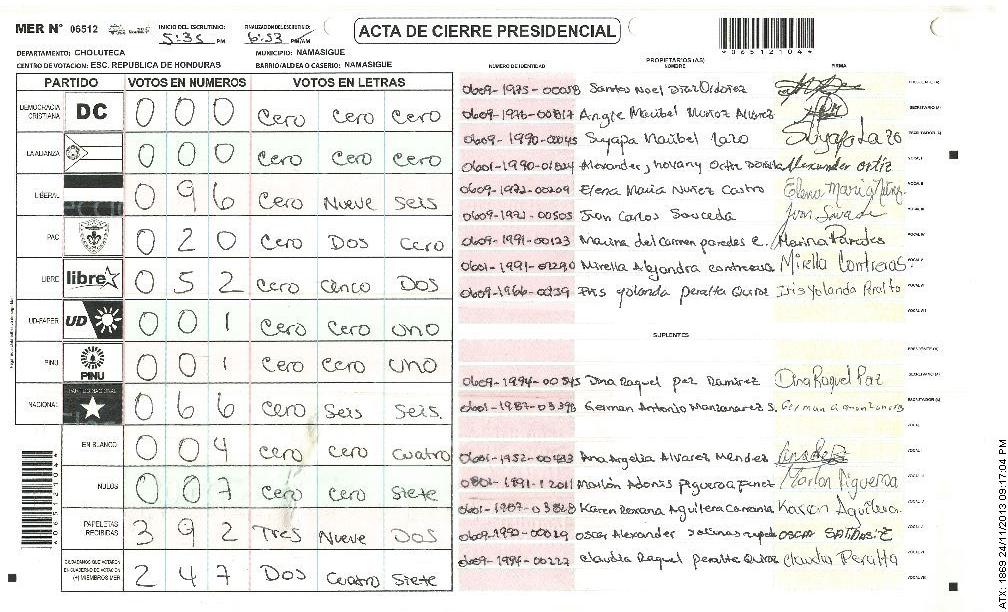 MER N° 06512 INICIO DEL ESCRUTINIO: 5:35 PM FINALIZACION DEL ESCRUTINIO: 6:53 PM/AM ACTA DE CIERRE PRESIDENCIAL
*06512104*
DEPARTAMENTO: CHOLUTECA MUNICIPIO: NAMASIGUE
CENTRO DE VOTACION: ESC. REPUBLICA DE HONDURAS BARRIO/ALDEA O CASERIO: NAMASIGUE
PARTIDO VOTOS EN NUMEROS VOTOS EN LETRAS
DEMOCRACIA CRISTIANA DC 0 0 0 Cero Cero Cero
LA ALIANZA 0 0 0 Cero Cero Cero
LIBERAL 0 9 6 Cero Nueve Seis
PAC 0 2 0 Cero Dos Cero
LIBRE libre 0 5 2 Cero Cinco Dos
UD-FAPER UD 0 0 1 Cero Cero Uno
PINU PINU 0 0 1 Cero Cero Uno
NACIONAL 0 6 6 Cero Seis Seis.
EN BLANCO 0 0 4 Cero Cero Cuatro
NULOS 0 0 7 Cero Cero Siete
PAPELETAS RECIBIDAS 3 9 2 Tres Nueve Dos
CIUDADANOS QUE VOTARON EN CUADERNO DE VOTACION (+) MIEMBROS MER 2 4 7 Dos Cuatro Siete
*06512104*
PROPIETARIOS (AS)
NUMERO DE IDENTIDAD NOMBRE FIRMA
0609-1975-00058 Santos Noel Diaz Ordoñez
0609-1976-00817 Angie Maribel Muñoz Alvarez
0609-1990-00045 Suyapa Maribel Lazo Suyapa Lazo
Alexander Jhovany Ortiz Alexander Ortiz
0609-1972-00209 Elena Maria Nuñez Castro Elena Maria Nuñez
0609-1971-00505 Juan Carlos Sauceda
0609-1991-00123 Marina del Carmen Paredes C. Marina Paredes
0601-1991-01290 Mirella Alejandra Contreras Mirella Contreras.
0609-1966-00239 Iris Yolanda Peralta Quiroz Iris Yolanda Peralta
SUPLENTES
0609-1994-00545 Dina Raquel Paz Ramirez Dina Raquel Paz
0601-1987-03398 German Antonio Manzanarez S. German
0601-1952-00433 Ana Argelia Alvarez Mendez
0801-1991-12011 Marlon Adonis Figueroa Marlon Figueroa
0601-1987-03828 Karen Roxana Aguilera Karen Aguilera
Oscar Alexander
0609-1994-00222 Claudia Raquel Peralta Quiroz Claudia Peralta
ATX: 1869 24/11/2013 09:17:04 PM